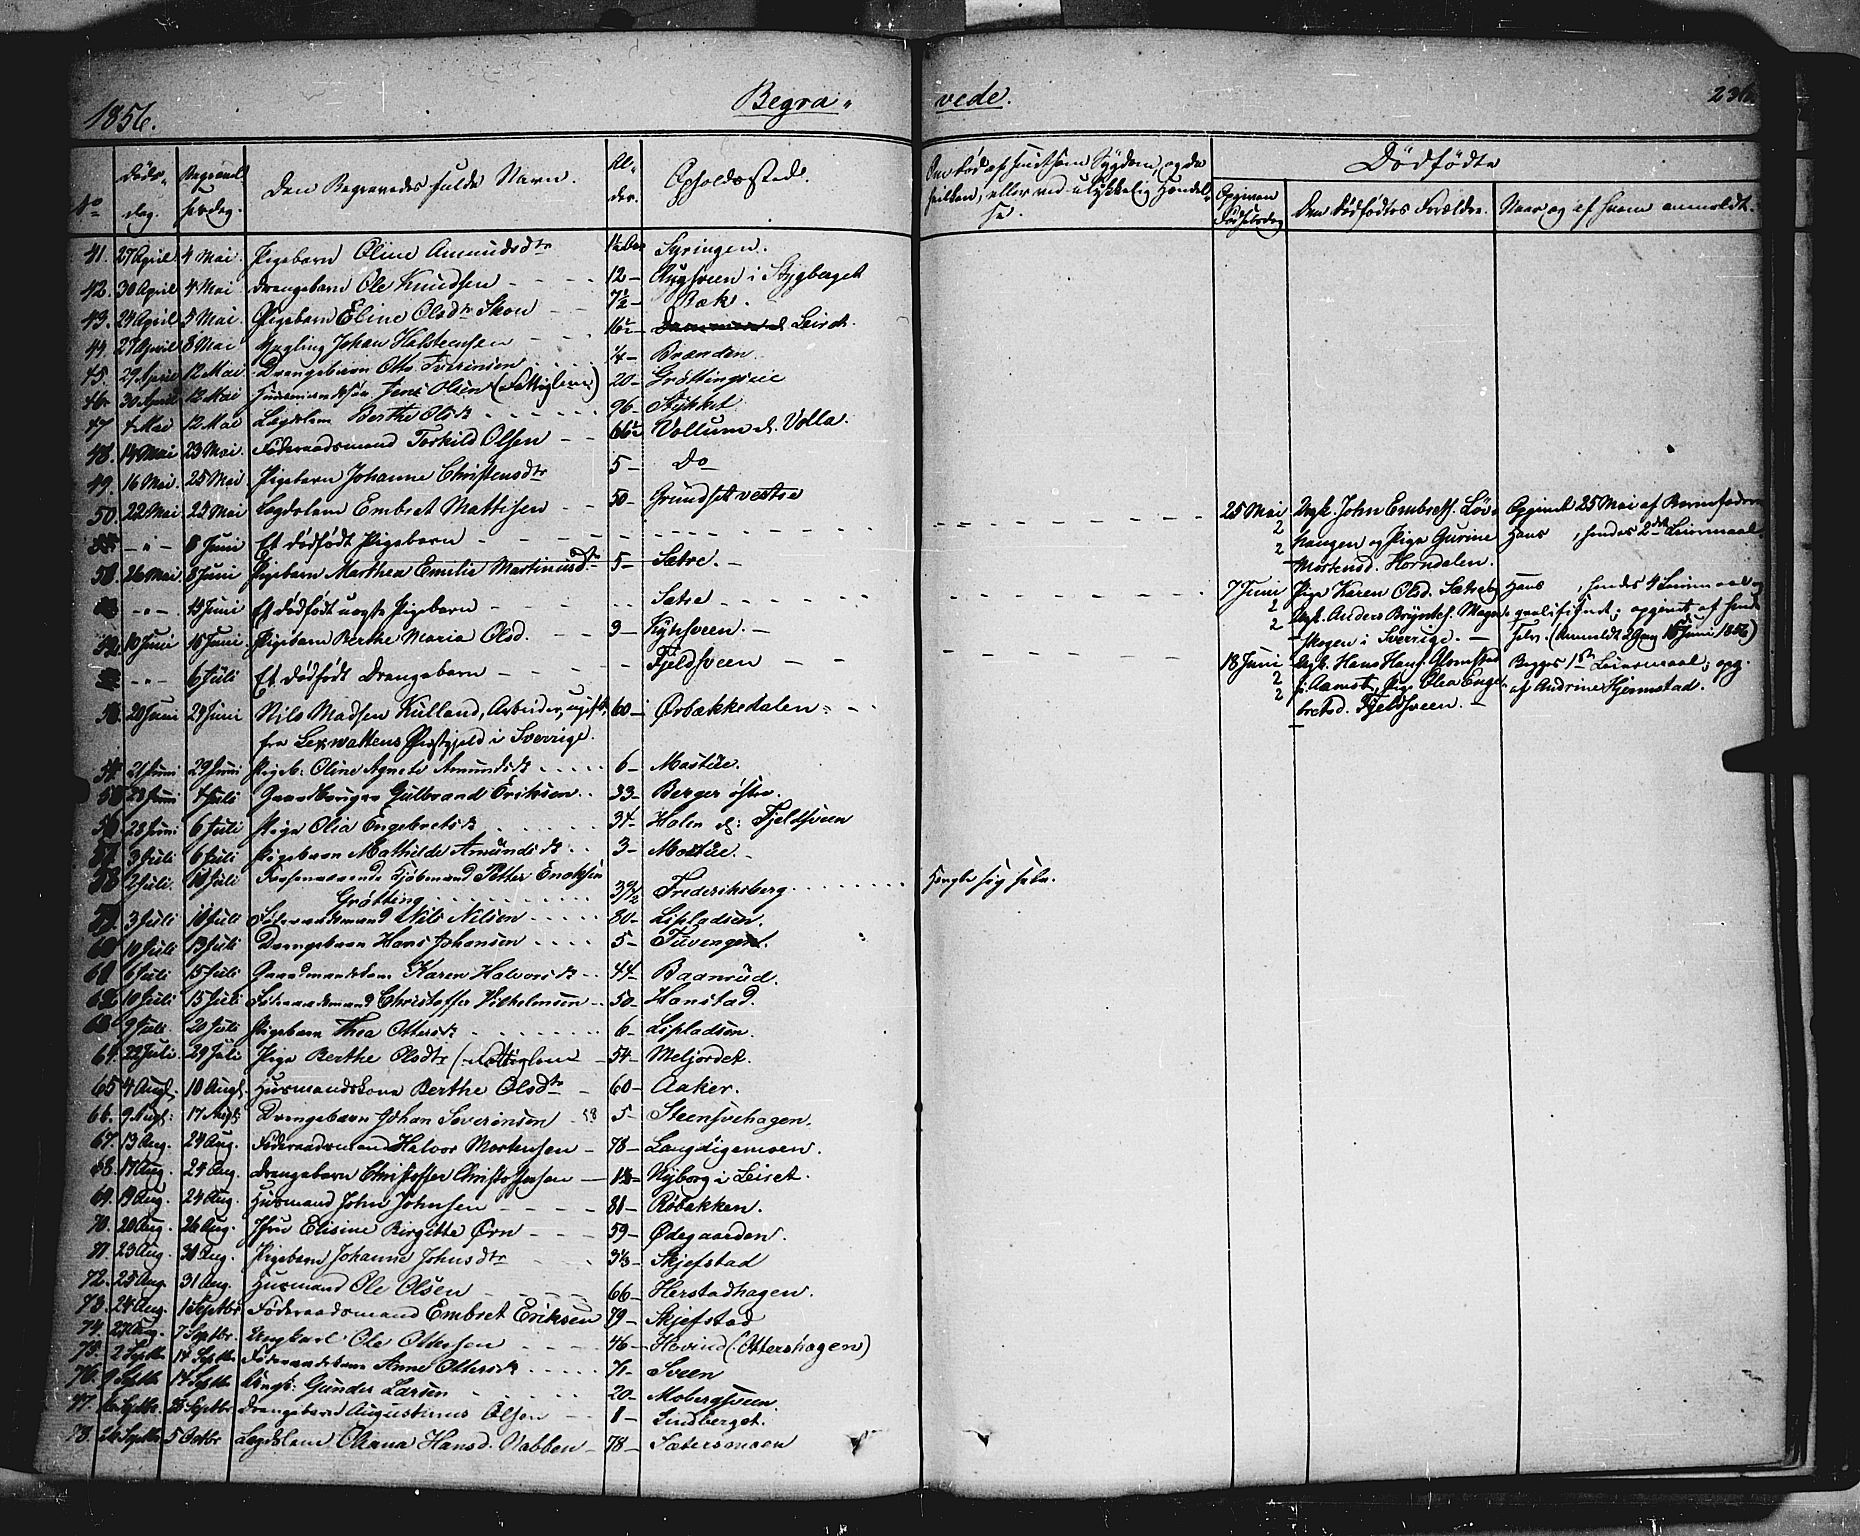 1856. Begra- vede. 236
No Døds- dag. Begravel- sesdag. Den Begravedes fulde Navn. Al- der. Opholdssted. Om død af smitsom Sygdom, og da hvilken, eller ved ulykkelig Hændel- se. Dødfødte
Opgiven Fødselsdag Den Dødfødtes Forældre. Naar og af hvem anmeldt.
41. 27 April 4 Mai. Pigebarn Oline Amundsdtr Syringen.
42. 30 April 4 Mai Drengebarn Ole Knudsen 12 i Stygberget
43. 24 April 5 Mai. Pigebarn Eline Olsdtr Skou Bæk.
44. 27 April 8 Mai Yngling Johan Halstensen Leiret.
45. 29 April 12 Mai Drengebarn Otto Severinsen Brænden.
46. 30 April 12 Mai Huusmandssøn Jens Olsen (Fattiglem) 20 Grøttingseie
47 4 Mai 12 Mai Lægdslem Berthe Olsdt 96 Stykket
48. 14 Mai 23 Mai. Føderaadsmand Torkild Olsen Vollum v. Volla.
49. 16 Mai. 25 Mai Pigebarn Johanne Christensdtr 5 Do
50. 22 Mai 25 Mai Lægdslem Embret Mattisen 50 Grundset vestre
8 Juni Et dødfødt Pigebarn 25 Mai Ungk. John Embretss. Løv- Opgivet 25 Mai af Barnefaderen
2 hougen og Pige Gurine Hans , hendes 2det Leiermaal
2 Mortensd. Horndalen.
51 26 Mai 8 Juni Pigebarn Marthea Emelie Martinusdtr 5 Sætre.
14 Juni Et dødfødt uægte Pigebarn Sætre 7 Juni Pige Karen Olsd. Sætre Hans , hendes 4 Leiermaal
2 Ungk. Anders Bryntes. Magne- ; opgivet af hende
2 skogen i Sverrige. selv. (Anmeldt 2 Gang 15 Juni 1856)
52. 10 Juni 15 Juni Pigebarn Berthe Maria Olsd. 9 Kyhsveen.
6 Juli Et dødfødt Drengebarn Fjeldsveen 18 Juni Ungk. Hans Hans. Glomstad Begges 1ste Leiermaal; opg.
2 i Aamot, Pige Olea Enge- af Andrine Hjermstad.
2 bretsd. Fjeldsveen.
53. 20 Juni 24 Juni Nils Madsen Kulland, Arbeider, ugift, 60 Ørbækkedalen
fra Lexwattens Præstgjeld i Sverrige.
54. 21 Juni 29 Juni Pigeb. Oline Agnete Amundsdt 6 Mostue.
55 23 Juni 4 Juli Gaardbruger Gulbrand Eriksen 33 Berger østre.
56 28 Juni 6 Juli Pige Olia Engebretsdt 34 Holen v: Fjeldsveen
57 3 Juli 6 Juli Pigebarn Mathilde Amundsdt 3 Mostue.
58 2 Juli. 10 Juli Forhenværende Kjøbmand Petter Enoksen
Grøtting 39½ Frederiksberg Hængte sig selv.
59. 3 Juli 10 Juli Føderaadsmand Nils Nilsen 80 Lipladsen.
60 10 Juli 13 Juli Drengebarn Hans Johansen 5 Tuvenget.
61 6 Juli 15 Juli Gaardmandskone Karen Halvorsdt 44 Baanrud.
62 10 Juli 15 Juli Føderaadsmand Christoffer Vilhelmsen 50 Hanstad.
63 9 Juli. 20 Juli Pigebarn Thea Ottersdt 6 Lipladsen.
64. 22 Juli. 29 Juli Pige Berthe Olsdtr (Fattiglem) 54 Meljordet.
65 4 Augt. 10 Augt. Huusmandskone Berthe Olsdtr 60 Aaker.
66. 9 Augt: 17 Augt: Drengebarn Johan Severinsen 5 Steensvehagen.
67. 13 Aug. 24 Aug. Føderaadsmand Halvor Mortensen 78 Langdigemoen.
68. 17 Aug. 24 Aug. Drengebarn Christoffer Christophersen Nyborg i Leiret.
69. 19 Aug. 24 Aug Huusmand John Johnsen 81 Røbækken.
70. 20 Aug. 26 Aug. Jfru Elisine Birgitte Ørn 59 Ødegaarden.
71. 23 Aug. 30 Aug. Pigebarn Johanne Johnsdtr Skjefstad
72. 25 Aug. 31 Aug. Huusmand Ole Olsen 66 Herstadhagen.
73. 24 Aug. 1 Septbr Føderaadsmand Embret Eriksen 79 Skjefstad
74. 27 Aug. 7 Septbr. Ungkarl Ole Ottersen 46 Hovind (Ottershagen)
75. 2 Septbr 14 Septbr Føderaadskone Anne Ottersdt 71 Sveen
76. 9 Septbr 14 Septbr Ungk. Gunder Larsen 20 Mobergsveen
77. Septbr. 25 Septbr Drengebarn Augustinus Olsen 1 Lindberget.
78. 26 Septbr 5 Octbr Lægdslem Oliana Hansd. Nabben 78 Sætersmoen